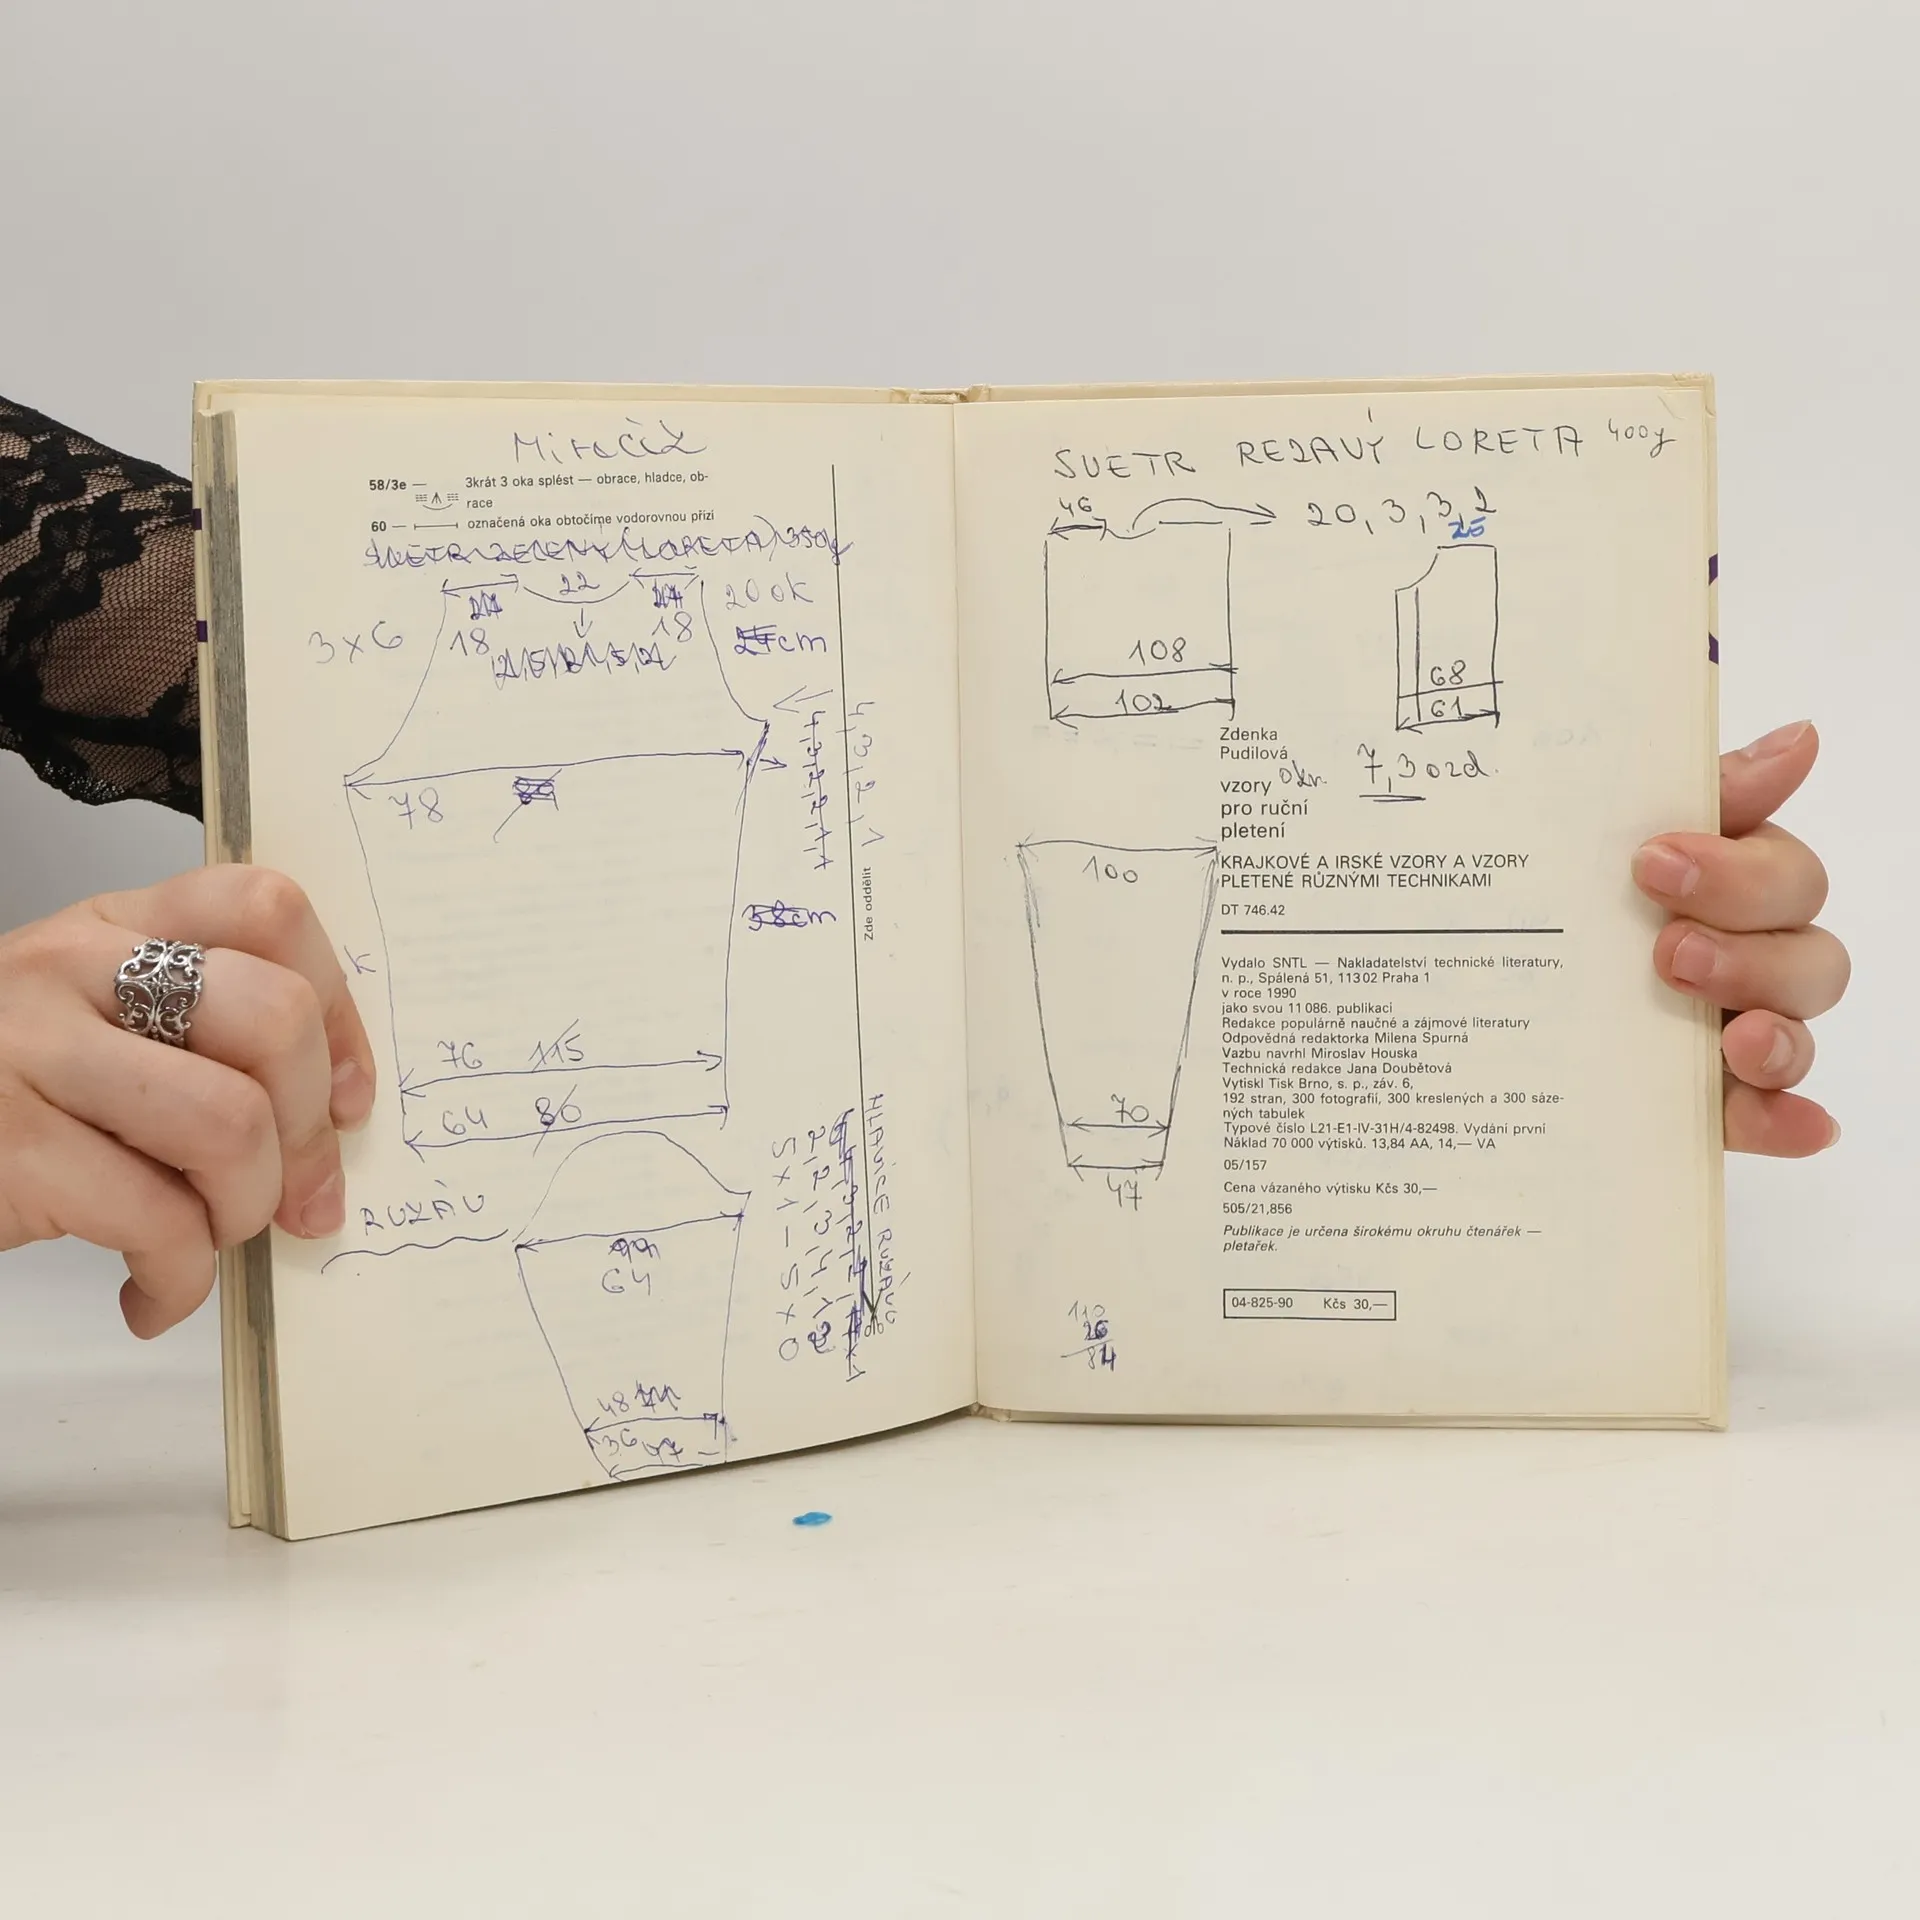 58/3e — 3krát 3 oka splést — obrace, hladce, ob-
race
60 — označená oka obtočíme vodorovnou přízí
SVETR ZELENÝ (LORETA) 350g
22
20 ok
3x6
18
18
cm
4, 3, 2, 1
78
Zde oddělit
58cm
76 115
64 80
HLAVICE RUKÁVU
5x1 – 5x0
RUKÁV
64
48
36 47
SVETR REZAVÝ LORETA 400g
46
20, 3, 3, 2
25
108
102
68
61
Zdenka
Pudilová
vzory
pro ruční
pletení
7, 3 ozd.
100
KRAJKOVÉ A IRSKÉ VZORY A VZORY
PLETENÉ RŮZNÝMI TECHNIKAMI
DT 746.42
Vydalo SNTL — Nakladatelství technické literatury,
n. p., Spálená 51, 113 02 Praha 1
v roce 1990
jako svou 11 086. publikaci
Redakce populárně naučné a zájmové literatury
Odpovědná redaktorka Milena Spurná
Vazbu navrhl Miroslav Houska
Technická redakce Jana Doubětová
Vytiskl Tisk Brno, s. p., záv. 6,
192 stran, 300 fotografií, 300 kreslených a 300 sáze-
ných tabulek
Typové číslo L21-E1-IV-31H/4-82498. Vydání první
Náklad 70 000 výtisků. 13,84 AA, 14,— VA
70
47
05/157
Cena vázaného výtisku Kčs 30,—
505/21,856
Publikace je určena širokému okruhu čtenářek —
pletařek.
04-825-90 Kčs 30,—
110
26
84